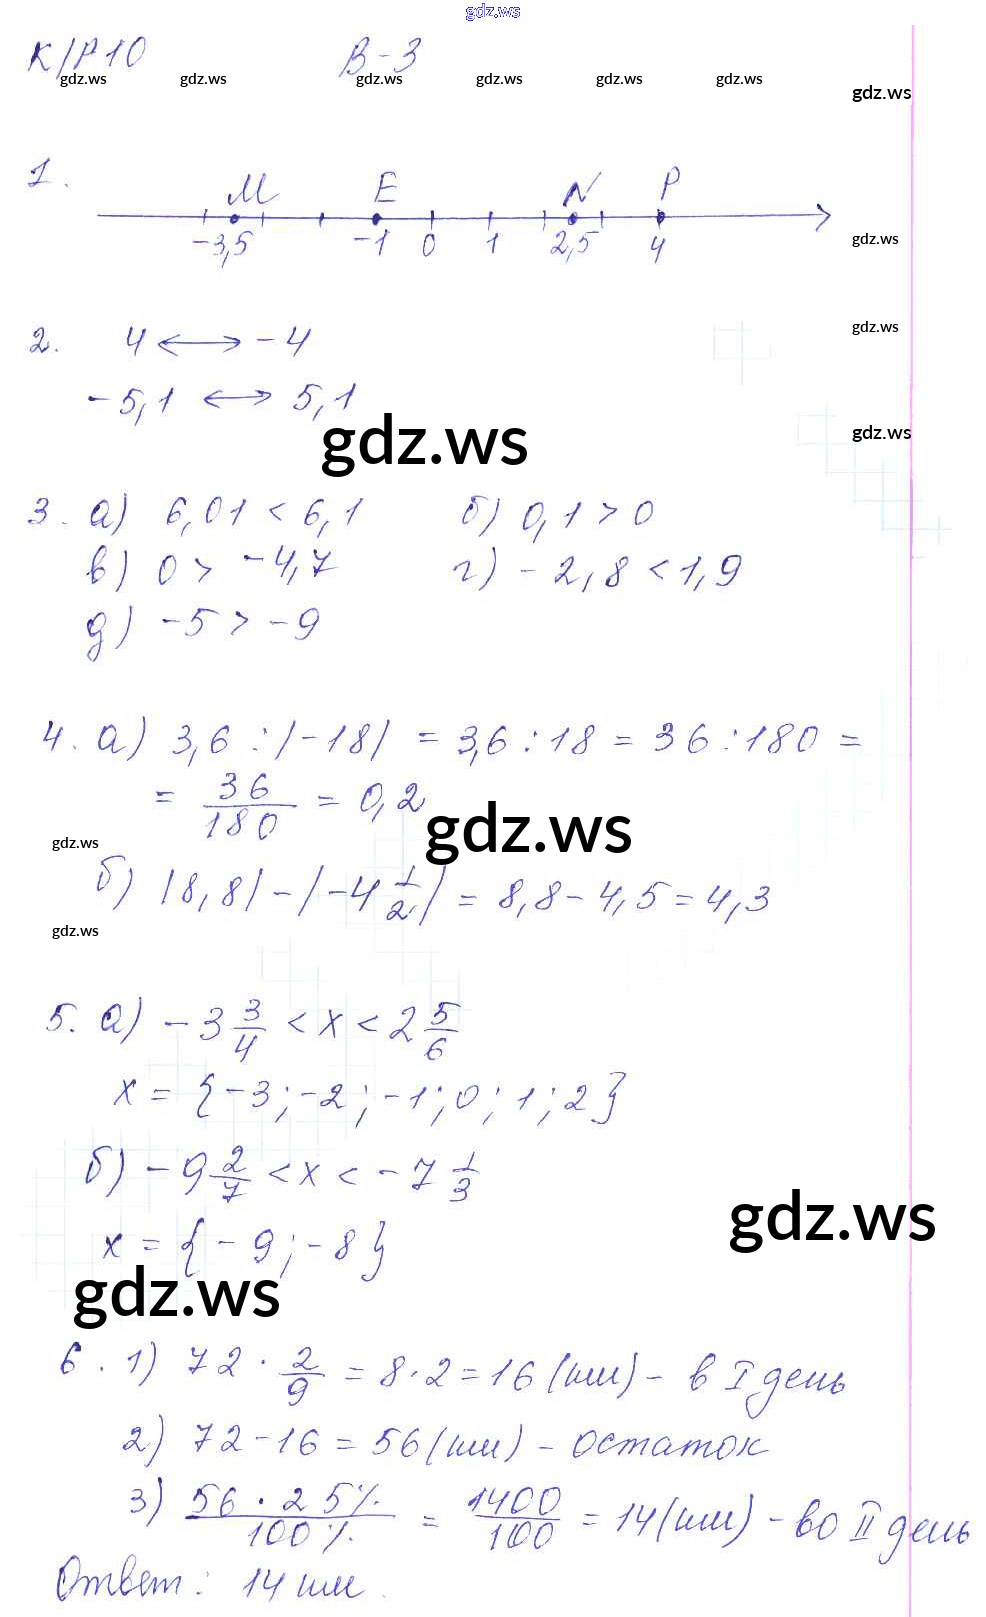 gdz.ws
К/Р10 В-3
gdz.ws gdz.ws gdz.ws gdz.ws gdz.ws gdz.ws
gdz.ws
1.
M E N P
-3,5 -1 0 1 2,5 4
gdz.ws
gdz.ws
2. 4 ⟷ -4
-5,1 ⟷ 5,1
gdz.ws
gdz.ws
3. а) 6,01 < 6,1 б) 0,1 > 0
в) 0 > -4,7 г) -2,8 < 1,9
д) -5 > -9
4. а) 3,6 : |-18| = 3,6 : 18 = 36 : 180 =
= 36/180 = 0,2
gdz.ws
gdz.ws
б) |8,8| - |-4 1/2| = 8,8 - 4,5 = 4,3
gdz.ws
5. а) -3 3/4 < x < 2 5/6
x = {-3; -2; -1; 0; 1; 2}
б) -9 2/7 < x < -7 1/3
gdz.ws
x = {-9; -8}
gdz.ws
6. 1) 72 · 2/9 = 8 · 2 = 16 (шт) - в I день
2) 72 - 16 = 56 (шт) - остаток
3) 56 · 25% / 100% = 1400/100 = 14 (шт) - во II день
Ответ: 14 шт.